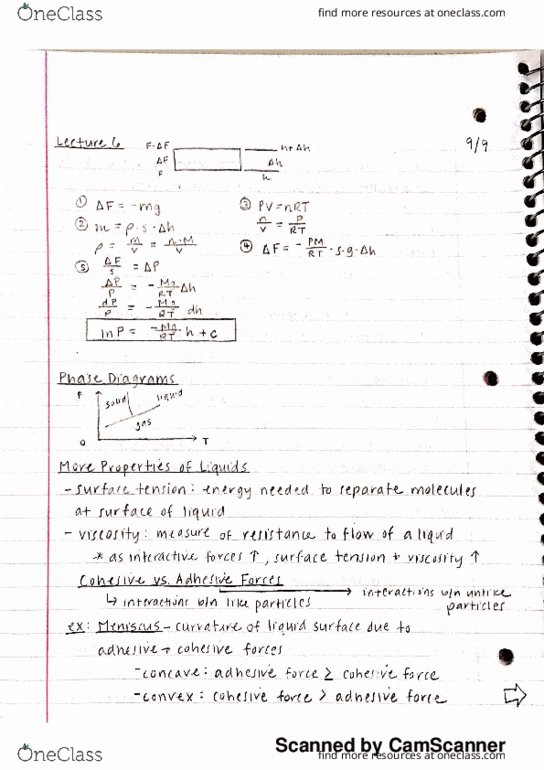 OneClass find more resources at oneclass.com
Lecture 6 F-ΔF h+Δh 9/9
ΔF Δh
F h
① ΔF = -mg ③ PV = nRT
② m = ρ·s·Δh n/V = P/RT
ρ = m/V = n·M/V ④ ΔF = - PM/RT ·s·g·Δh
⑤ ΔF/s = ΔP
ΔP/P = - Mg/RT Δh
dP/P = - Mg/RT dh
ln P = -Mg/RT · h + c
Phase Diagrams
P solid liquid
gas
0 T
More Properties of Liquids
- surface tension: energy needed to separate molecules
at surface of liquid
- viscosity: measure of resistance to flow of a liquid
* as interactive forces ↑, surface tension + viscosity ↑
Cohesive vs. Adhesive Forces → interactions b/n unlike
particles
↳ interactions b/n like particles
ex: Meniscus - curvature of liquid surface due to
adhesive + cohesive forces
- concave: adhesive force ≥ cohesive force
- convex: cohesive force > adhesive force
Scanned by CamScanner
OneClass find more resources at oneclass.com